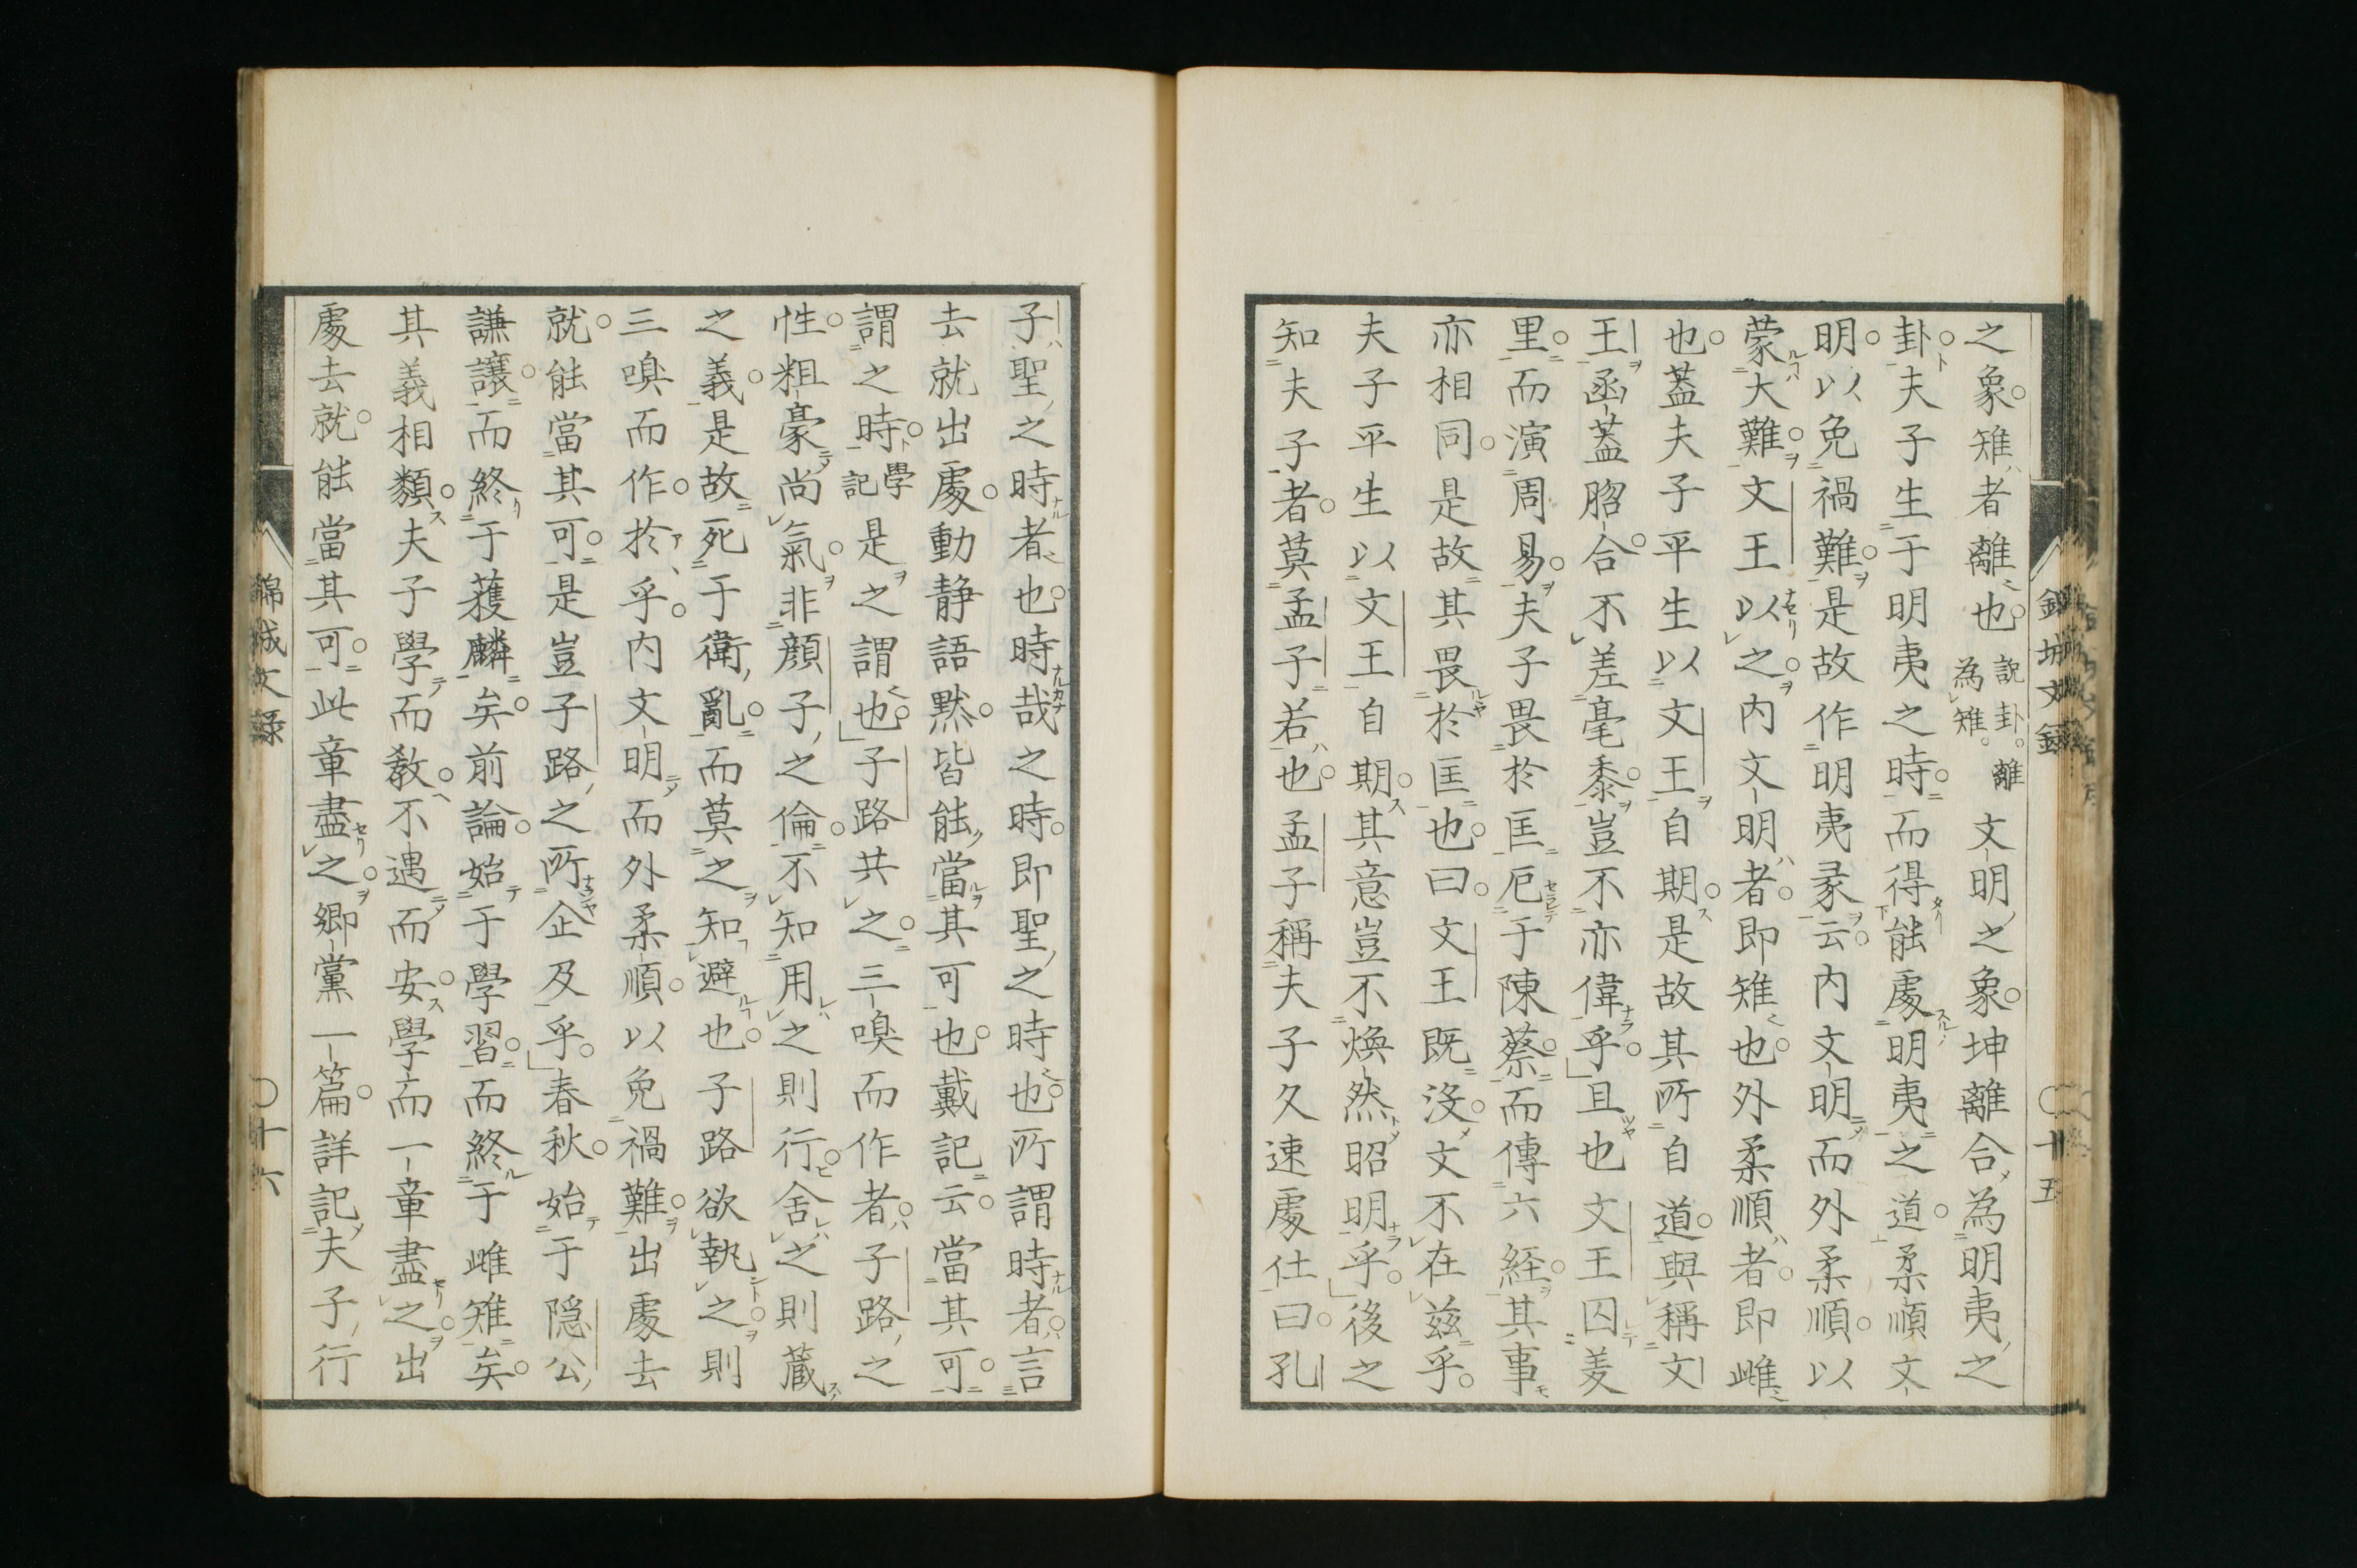 之象雉者離也說卦離為雉文明之象坤離合為明夷之
卦夫子生于明夷之時而得能處明夷之道柔順文
明以免禍難是故作明夷彖云內文明而外柔順以
蒙大難文王以之內文明者即雉也外柔順者即雌
也蓋夫子平生以文王自期是故其所自道與稱文
王函蓋脗合不差毫黍豈不亦偉乎且也文王囚羑
里而演周易夫子畏於匡厄于陳蔡而傳六経其事
亦相同是故其畏於匡也曰文王既沒文不在茲乎
夫子平生以文王自期其意豈不煥然昭明乎後之
知夫子者莫孟子若也孟子稱夫子久速處仕曰孔
錦城文録
〇十五
子聖之時者也時哉之時即聖之時也所謂時者言
去就出處動靜語默皆能當其可也戴記云當其可
謂之時學記是之謂也子路共之三嗅而作者子路之
性粗豪尚氣非顏子之倫不知用之則行舍之則蔵
之義是故死于衛亂而莫之知避也子路欲執之則
三嗅而作於乎內文明而外柔順以免禍難出處去
就能當其可是豈子路之所企及乎春秋始于隠公
謙讓而終于獲麟矣前論始于學習而終于雌雉矣
其義相類夫子學而教不遇而安學而一章盡之出
處去就能當其可此章盡之鄉黨一篇詳記夫子行
錦城文録
〇十六